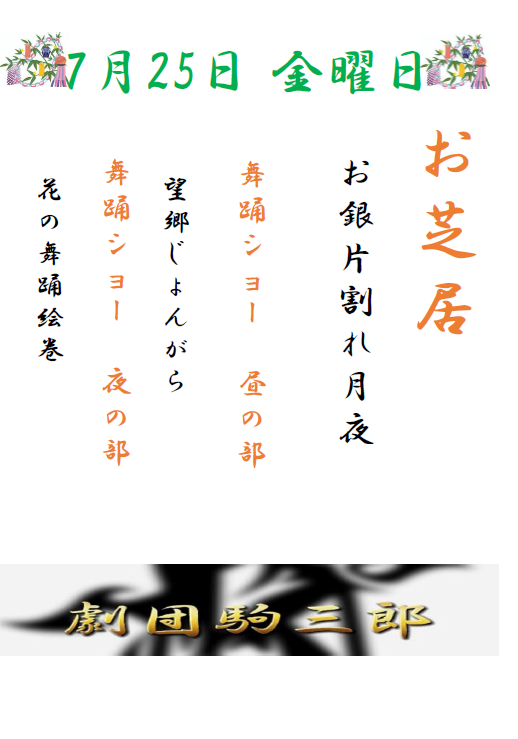 7月25日 金曜日
お芝居
お銀片割れ月夜
舞踊ショー 昼の部
望郷じょんがら
舞踊ショー 夜の部
花の舞踊絵巻
劇団駒三郎